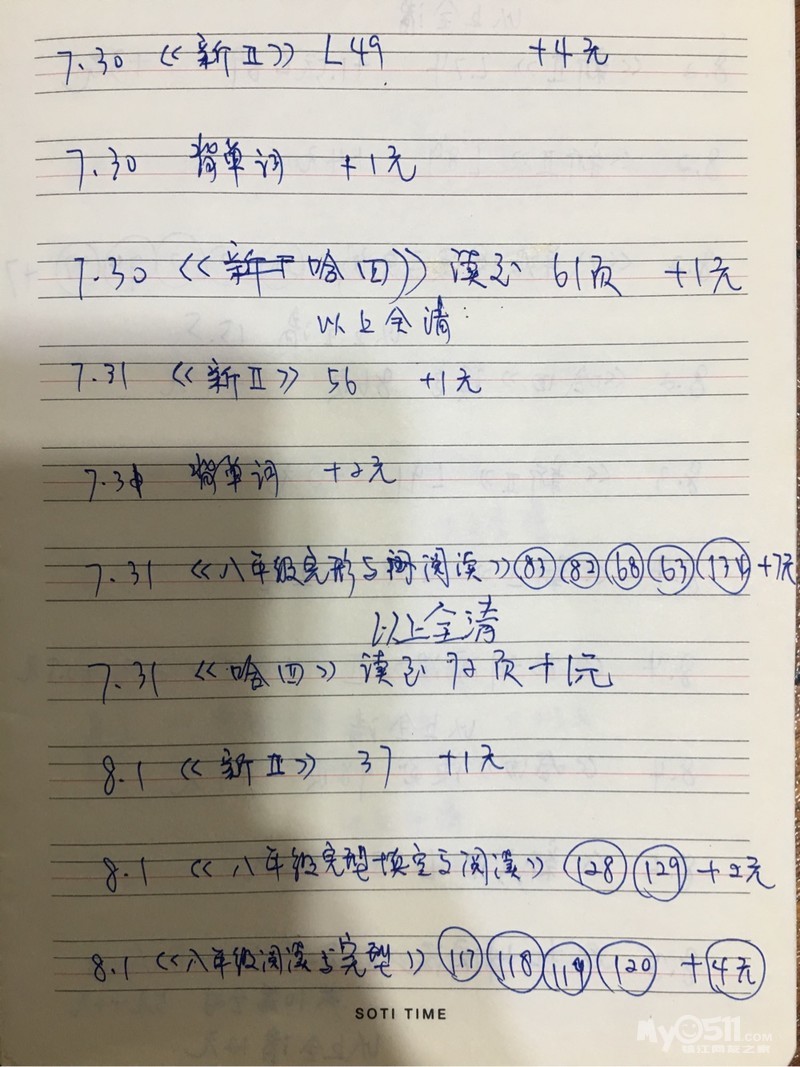 7.30 《新Ⅱ》 L49 +4元
7.30 背单词 +1元
7.30 《哈四》读至 61页 +1元
以上全清
7.31 《新Ⅱ》 56 +1元
7.31 背单词 +2元
7.31 《八年级完形与阅读》 83 82 68 63 134 +7元
以上全清
7.31 《哈四》 读至 72页 +1元
8.1 《新Ⅱ》 37 +1元
8.1 《八年级完型填空与阅读》 128 129 +2元
8.1 《八年级阅读与完型》 117 118 119 120 +4元
SOTI TIME
My0511.COM